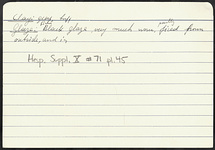 Clay: gray, buff
Glaze: Black glaze very much worn, partly fired from
outside, and in
Hesp. Suppl. X #71 pl. 45